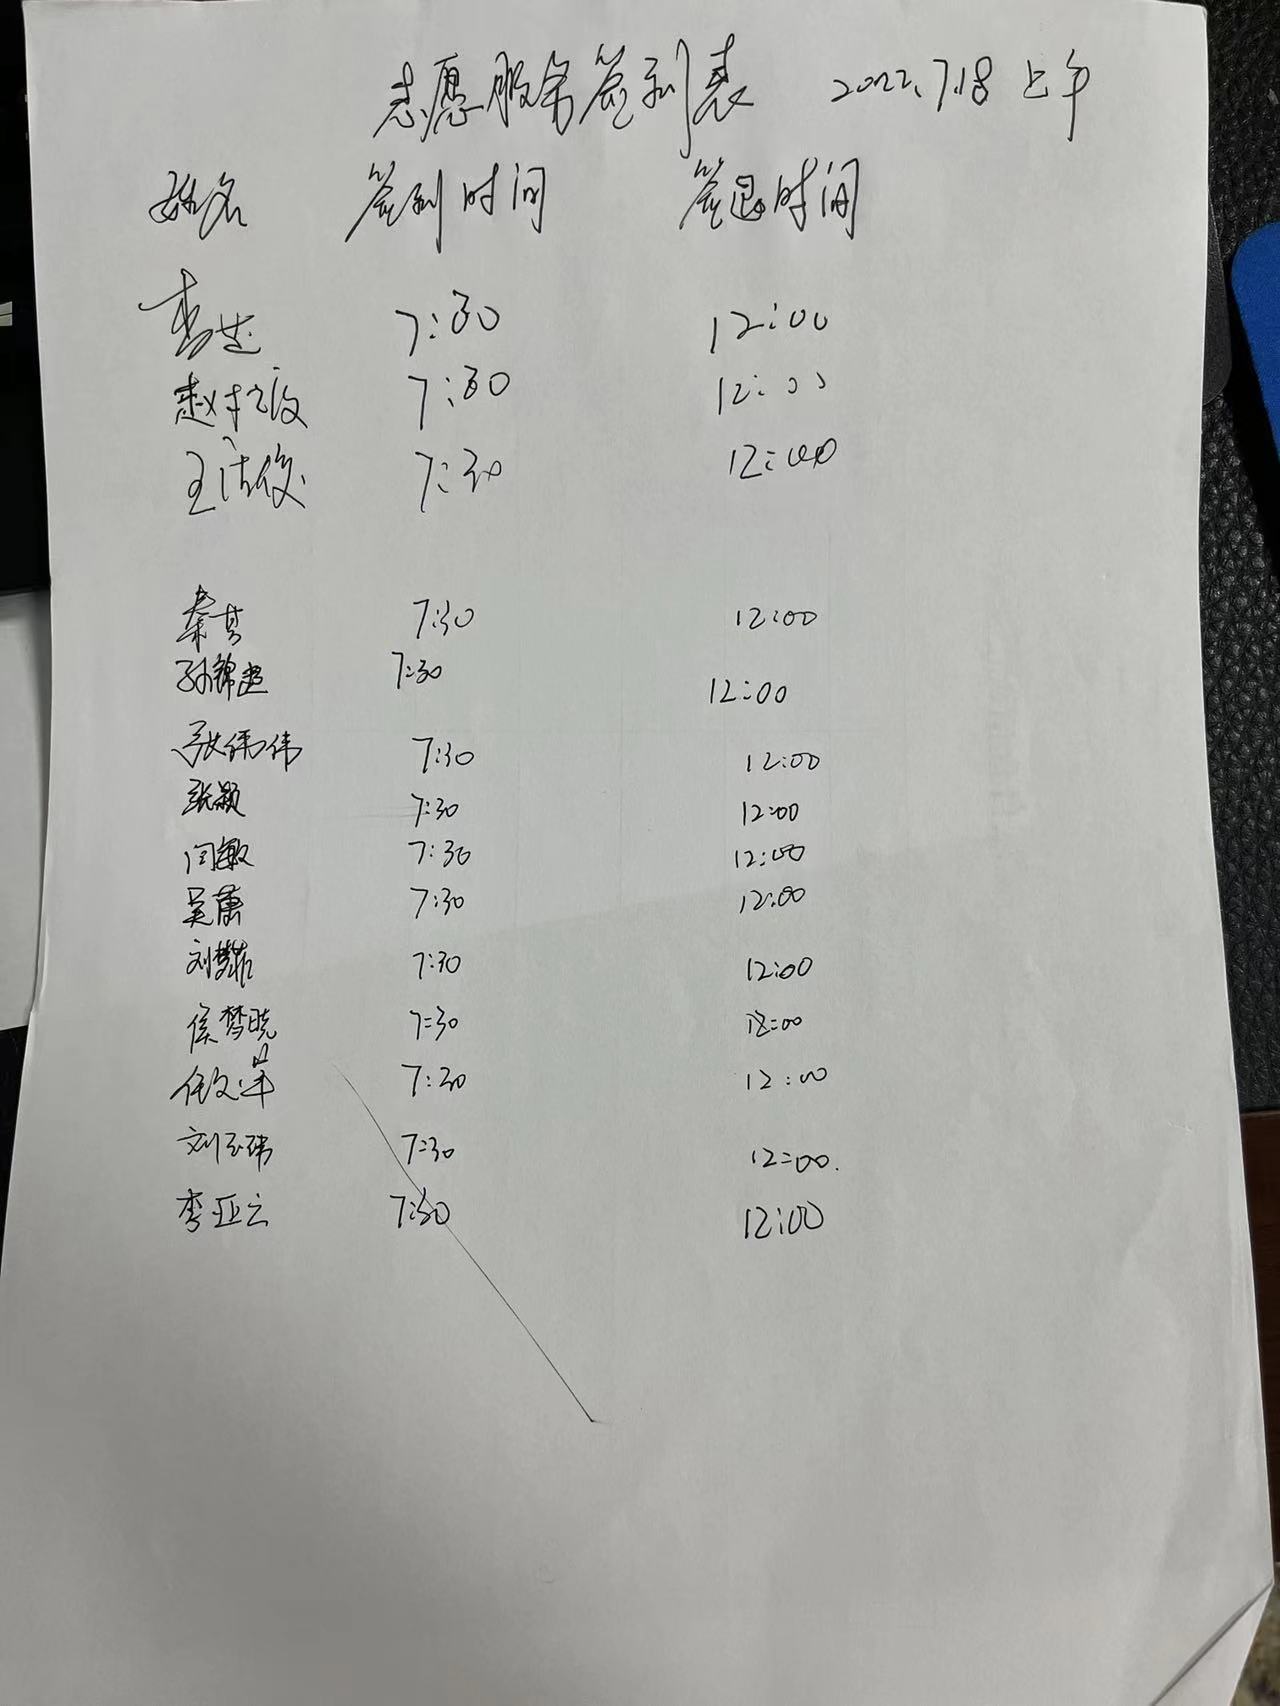 志愿服务签到表 2022.7.18 上午
姓名 签到时间 签退时间
李 7:30 12:00
赵 7:30 12:00
王洁俊 7:30 12:00
秦 7:30 12:00
孙锦超 7:30 12:00
张伟伟 7:30 12:00
张颖 7:30 12:00
闫敏 7:30 12:00
吴蕾 7:30 12:00
刘梦茹 7:30 12:00
侯梦晓 7:30 12:00
任文 7:30 12:00
刘玉玮 7:30 12:00.
李亚云 7:30 12:00